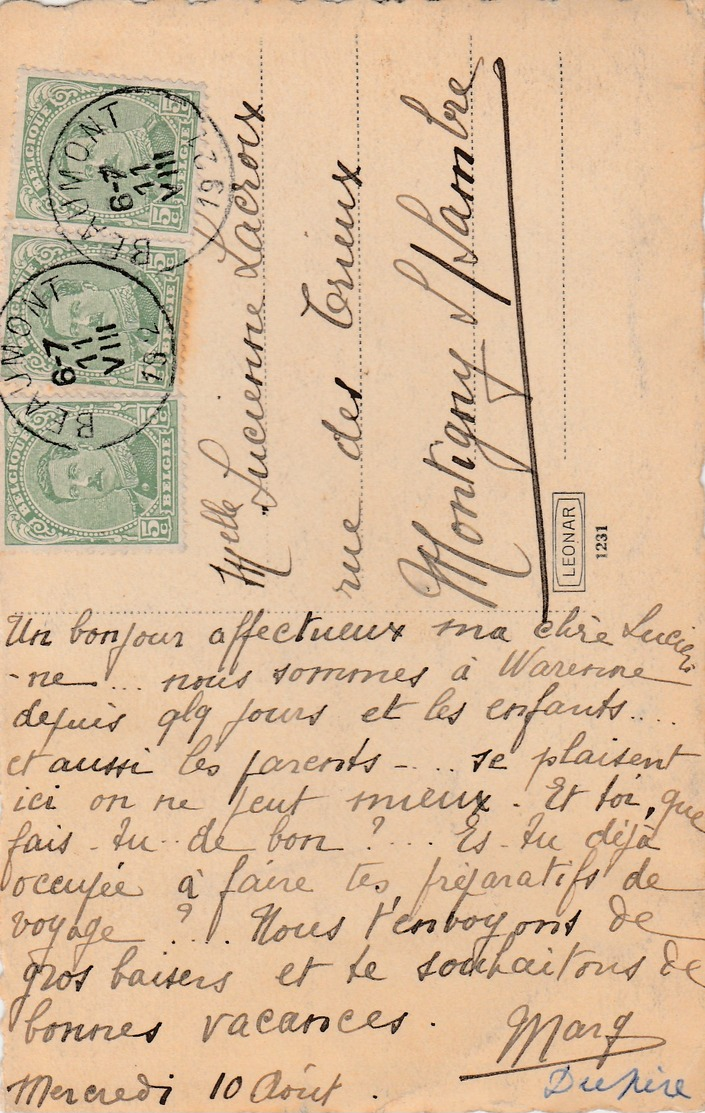 BELGIQUE 5c BELGIË
BEAUMONT
6-7
11
VIII
192
BELGIQUE 5c BELGIË
BEAUMONT
6-7
11
VIII
192
BELGIQUE 5c BELGIË
Melle Lucienne Lacroix
rue des Trieux
Montigny S/Sambre
LEONAR
1231
Un bonjour affectueux ma chère Lucien
-ne ... nous sommes à
depuis qlq jours et les enfants....
et aussi les parents - ... se plaisent
ici on ne peut mieux. Et toi, que
fais-tu de bon ? ... Es-tu déjà
occupée à faire tes préparatifs de
voyage ? ... Nous t'envoyons de
gros baisers et te souhaitons de
bonnes vacances.
Marg
Mercredi 10 Août.